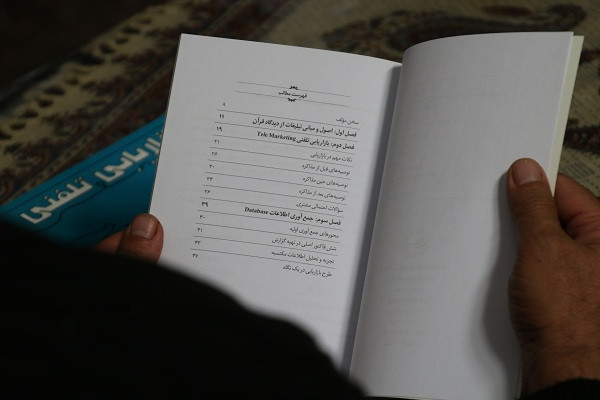 فهرست مطالب
سخن مؤلف ۸
فصل اول: اصول و مبانی تبلیغات از دیدگاه قرآن ۱۱
فصل دوم: بازاریابی تلفنی Tele Marketing ۱۹
نکات مهم در بازاریابی ۲۱
توصیه‌های قبل از مذاکره ۲۵
توصیه‌های حین مذاکره ۳۰
توصیه‌های بعد از مذاکره ۳۳
سؤالات احتمالی مشتری ۳۶
فصل سوم: جمع آوری اطلاعات Database ۳۹
محورهای جمع آوری اولیه ۴۰
شش فاکتور اصلی در تهیه گزارش ۴۱
تجزیه و تحلیل اطلاعات مکتسبه ۴۴
طرح بازاریابی در یک نگاه ۴۶
بازاریابی تلفنی